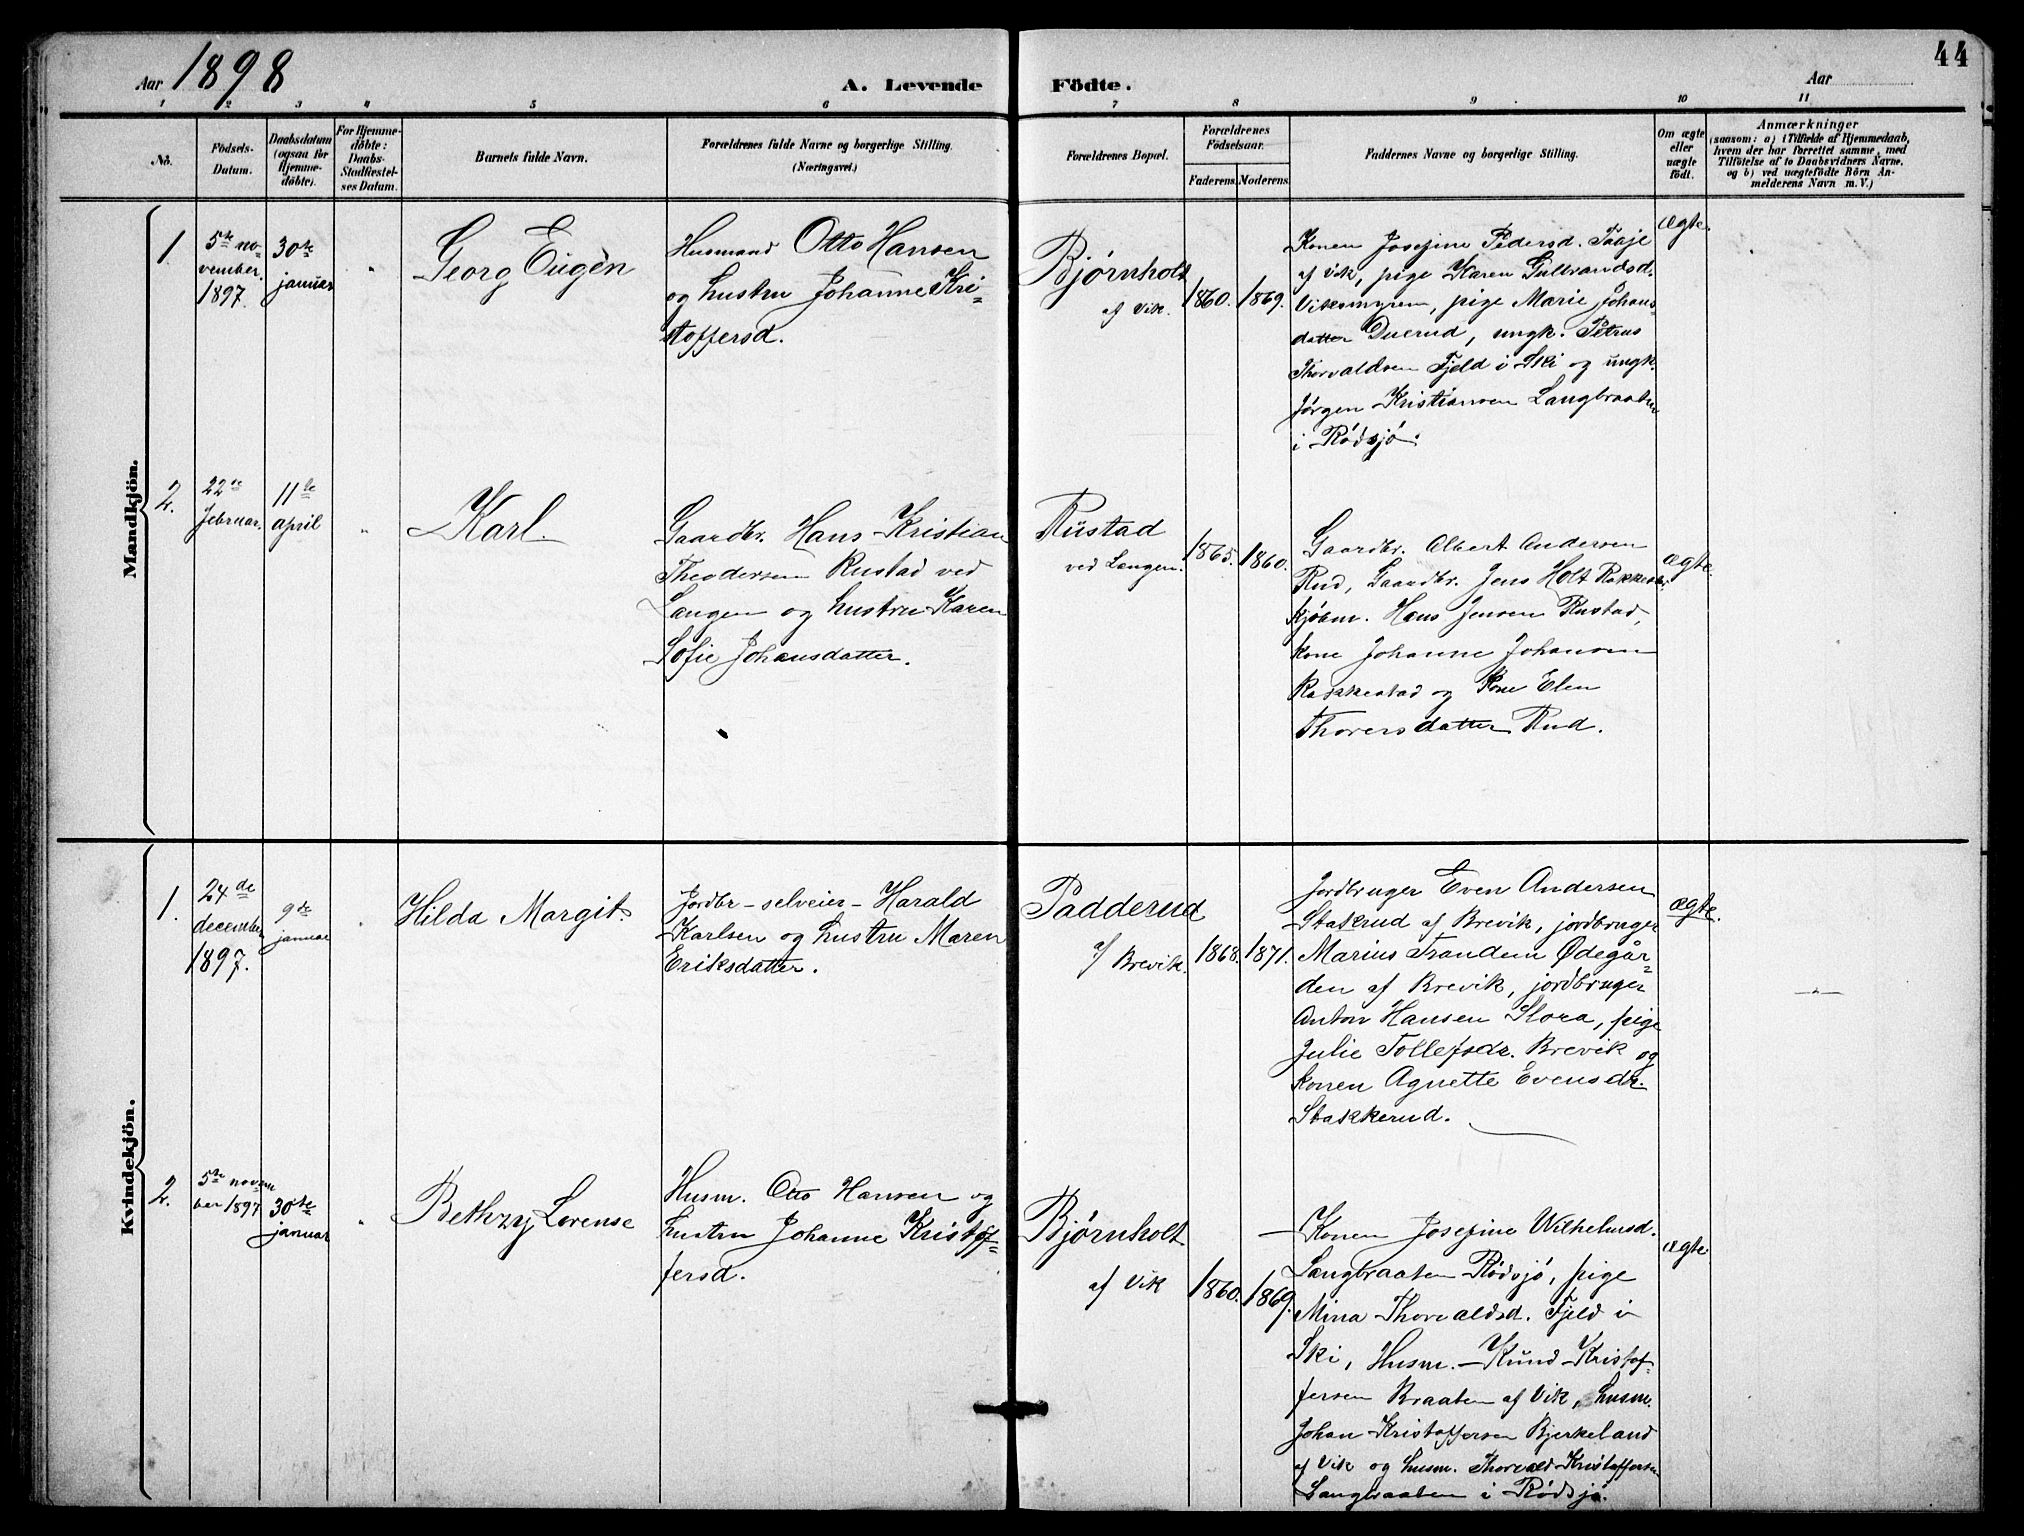 44
Aar 1898
A. Levende Födte.
Aar
1 2 3 4 5 6 7 8 9 10 11
No.
Födsels-
Datum.
Daabsdatum
(ogsaa for
Hjemme-
döbte).
For Hjemme-
döbte:
Daabs-
Stadfæstel-
ses Datum.
Barnets fulde Navn.
Forældrenes fulde Navne og borgerlige Stilling.
(Næringsvei.)
Forældrenes Bopæl.
Forældrenes
Födselsaar.
Faderens. Moderens.
Faddernes Navne og borgerlige Stilling.
Om ægte
eller
uægte
födt.
Anmærkninger
(saasom: a) i Tilfælde af Hjemmedaab,
hvem der har forrettet samme, med
Tilföielse af to Daabsvidners Navne.
og b) ved uægtefödte Börn An-
melderens Navn m. V.)
Mandkjön.
1.
5te no-
vember.
1897.
30te
januar
"
Georg Eugèn
Husmand Otto Hansen
og hustru Johanne Kri-
stoffersd.
Bjørnholt
af Vik.
1860.
1869.
Konen Josefine Pedersd. Taaje
af Vik, pige Karen Gulbrandsd.
Viksmyren, pige Marie Johans-
datter Duerud, ungk. Petrus
Thorvaldsen Fjeld i Ski og ungk.
Jørgen Kristiansen Langbraaten
i Rødsjø.
ægte.
2.
22de
februar.
11te
april
"
Karl.
Gaardbr. Hans Kristian
Theodersen Rustad ved
Langen og hustru Karen
Sofie Johansdatter.
Rustad
ved Langen.
1865.
1860.
Gaardbr. Albert Andersen
Rud, Gaardbr. Jens Holt
Kjøbm. Hans Jensen Rustad,
kone Johanne Johansen
Rakkestad og Kone Elen
Thorersdatter Rud.
ægte.
Kvindekjön.
1.
24de
december
1897.
9de
januar
"
Hilda Margit.
Jordbr - selveier - Harald
Karlsen og hustru Maren
Eriksdatter.
Padderud
af Brevik.
1868.
1871.
Jordbruger Even Andersen
Stakrud af Brevik, jordbruger
Marius Trandem Ødegår-
den af Brevik, jordbruger
Anton Hansen Slora, pige
Julie Tollefsdr. Brevik og
konen Agnette Evensdr.
Stakkerud.
ægte.
— " —
2.
5te novem
ber 1897
30te
januar
"
Bethzy Lovense
Husm. Otto Hansen og
hustru Johanne Kristof-
fersd.
Bjørnholt.
af Vik
1860.
1869.
— Konen Josefine Wilhelmsd.
Langbraaten Rødsjø, pige
Mina Thorvaldsd. Fjeld i
Ski, Husm. Knud Kristof-
fersen Braaten af Vik, husm.
Johan Kristoffersen Bjerkeland
af Vik og husm. Thorvald Kristoffersen
Langbraaten i Rødsjø.
ægte